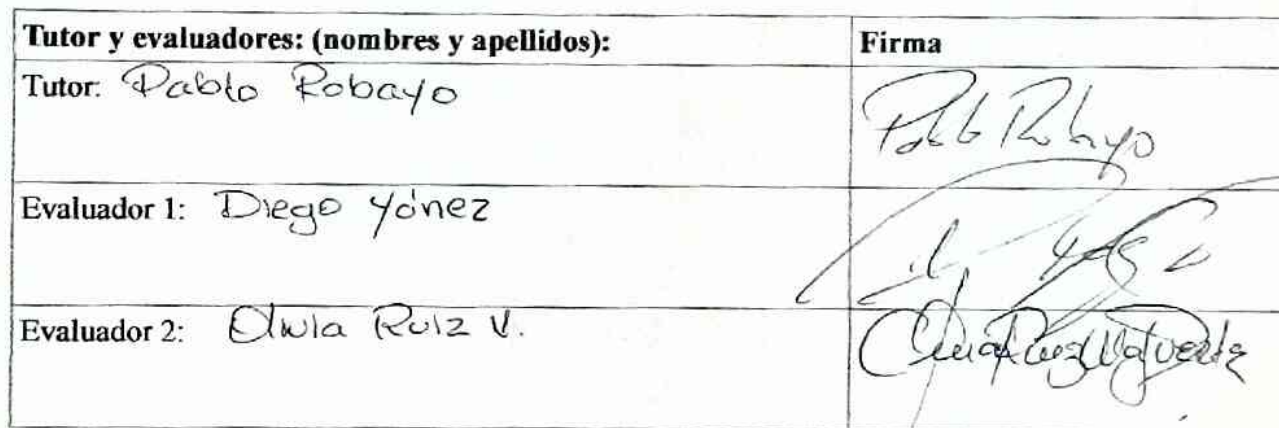 Tutor y evaluadores: (nombres y apellidos): Firma
Tutor: Pablo Robayo Pablo Robayo
Evaluador 1: Diego Yánez
Evaluador 2: Olivia Ruiz V.